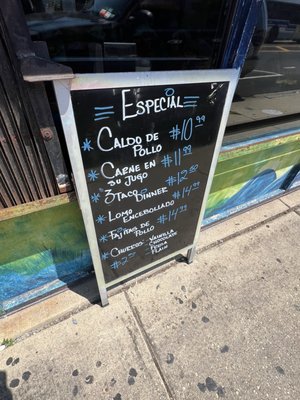 Especial
Caldo de Pollo $10.99
Carne en su jugo $11.99
3 Taco Dinner $12.50
Lomo Encebollado $14.99
Fajitas de Pollo $14.99
Churros: Vainilla
Fresa
Plain